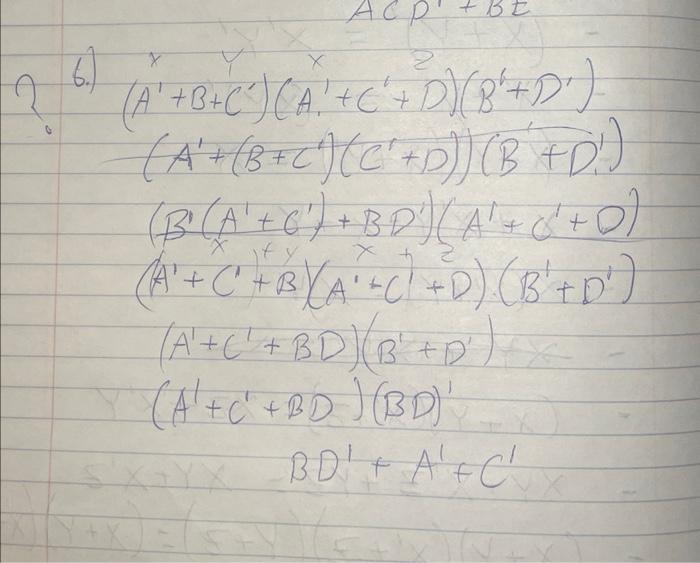 ACD' + BE
6.)
X Y X Z
? (A'+B+C')(A'+C'+D)(B'+D')
(A'+(B+C')(C'+D))(B'+D')
(B'(A'+C')+BD')(A'+C'+D)
X + Y X + Z
(A'+C'+B)(A'+C'+D)(B'+D')
(A'+C'+BD)(B'+D')
(A'+C'+BD)(BD)'
BD' + A' + C'